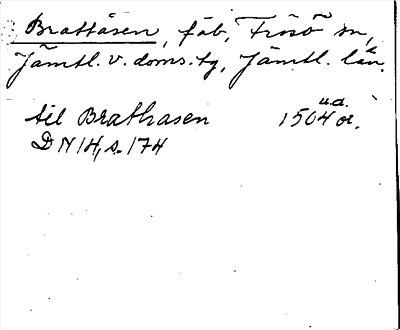 Brattåsen, fäb, Frösö sn,
Jämtl. v. doms. tg, Jämtl. län.
till Brathasen 1504 u.a. or.
DN 14, s. 174